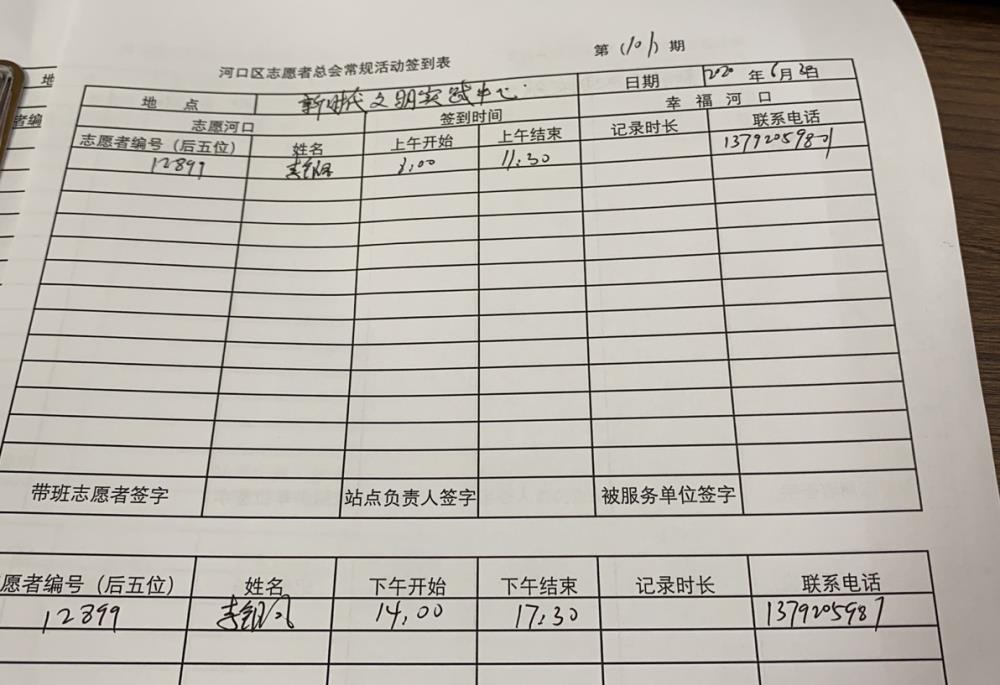 第(101)期
河口区志愿者总会常规活动签到表
地 点 新时代文明实践中心 日期 2020年6月30日
志愿河口 签到时间 幸福河口
志愿者编号（后五位） 姓名 上午开始 上午结束 记录时长 联系电话
12899 11:30
带班志愿者签字 站点负责人签字 被服务单位签字
愿者编号（后五位） 姓名 下午开始 下午结束 记录时长 联系电话
12899 14:00 17:30
地
者编